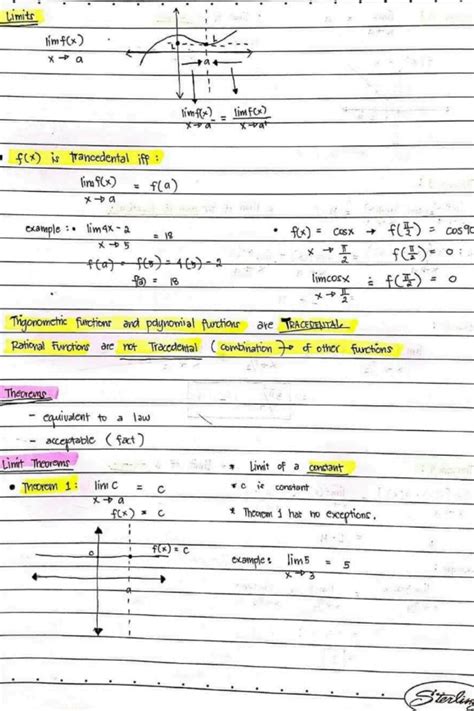 Limits
lim f(x)
x → a
L
L
a
lim f(x) = lim f(x)
x → a⁻ x → a⁺
• f(x) is trancedental iff :
lim f(x) = f(a)
x → a
example : • lim 4x - 2 = 18
x → 5
f(a) = f(5) = 4(5) - 2
f(a) = 18
• f(x) = cosx → f(π/2) = cos90
x → π/2 f(π/2) = 0
lim cosx = f(π/2) = 0
x → π/2
Trigonometric functions and polynomial functions are TRACEDENTAL
Rational Functions are not Tracedental ( combination ) → of other functions
Theorems
- equivalent to a law
- acceptable ( fact )
Limit Theorems
* limit of a constant
• Theorem 1 : lim c = c
x → a
* c is constant
f(x) = c
* Theorem 1 has no exceptions.
f(x) = c
a
example : lim 5 = 5
x → 3
Sterling